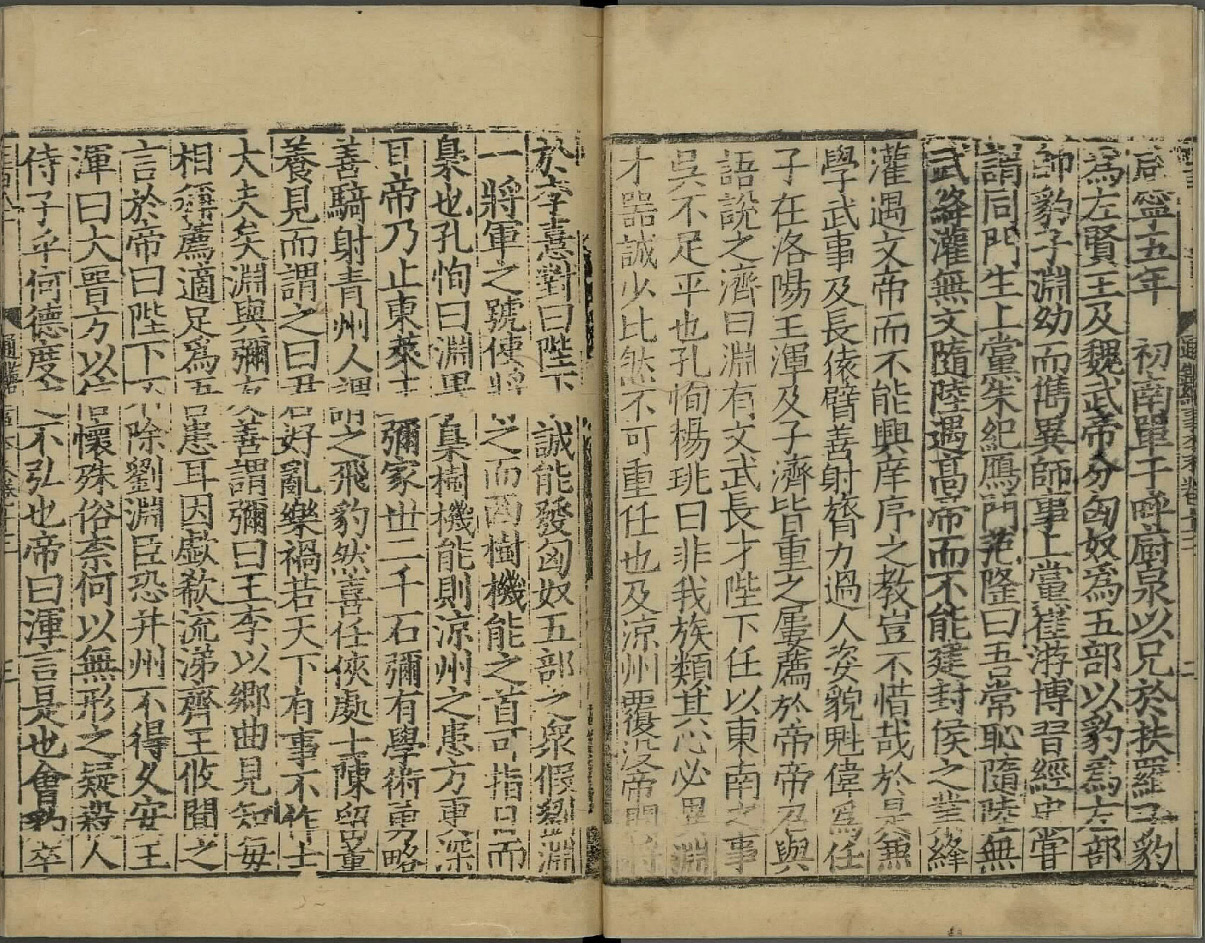 咸寧五年 初南單于呼廚泉以兄於扶羅子豹
爲左賢王及魏武帝分匈奴爲五部以豹爲左部
帥豹子淵幼而儁異師事上黨崔游博習經史嘗
謂同門生上黨朱紀鴈門范隆曰吾常恥隨陸無
武絳灌無文隨陸遇高帝而不能建封侯之業絳
灌遇文帝而不能興庠序之教豈不惜哉於是兼
學武事及長猿臂善射膂力過人姿貌魁偉爲任
子在洛陽王渾及子濟皆重之屢薦於帝帝召與
語說之濟曰淵有文武長才陛下任以東南之事
吳不足平也孔恂楊珧曰非我族類其心必異淵
才器誠少比然不可重任也及涼州覆沒帝問將
於李憙對曰陛下誠能發匈奴五部之衆假劉淵
一將軍之號使將之而西樹機能之首可指日而
梟也孔恂曰淵果梟樹機能則涼州之患方更深
耳帝乃止東萊王彌家世二千石彌有學術勇略
善騎射青州人謂之飛豹然喜任俠處士陳留董
養見而謂之曰君好亂樂禍若天下有事不作士
大夫矣淵與彌友善謂彌曰王李以鄉曲見知每
相稱薦適足爲吾患耳因歔欷流涕齊王攸聞之
言於帝曰陛下不除劉淵臣恐并州不得久安王
渾曰大晉方以信懷殊俗柰何以無形之疑殺人
侍子乎何德度之不弘也帝曰渾言是也會豹卒